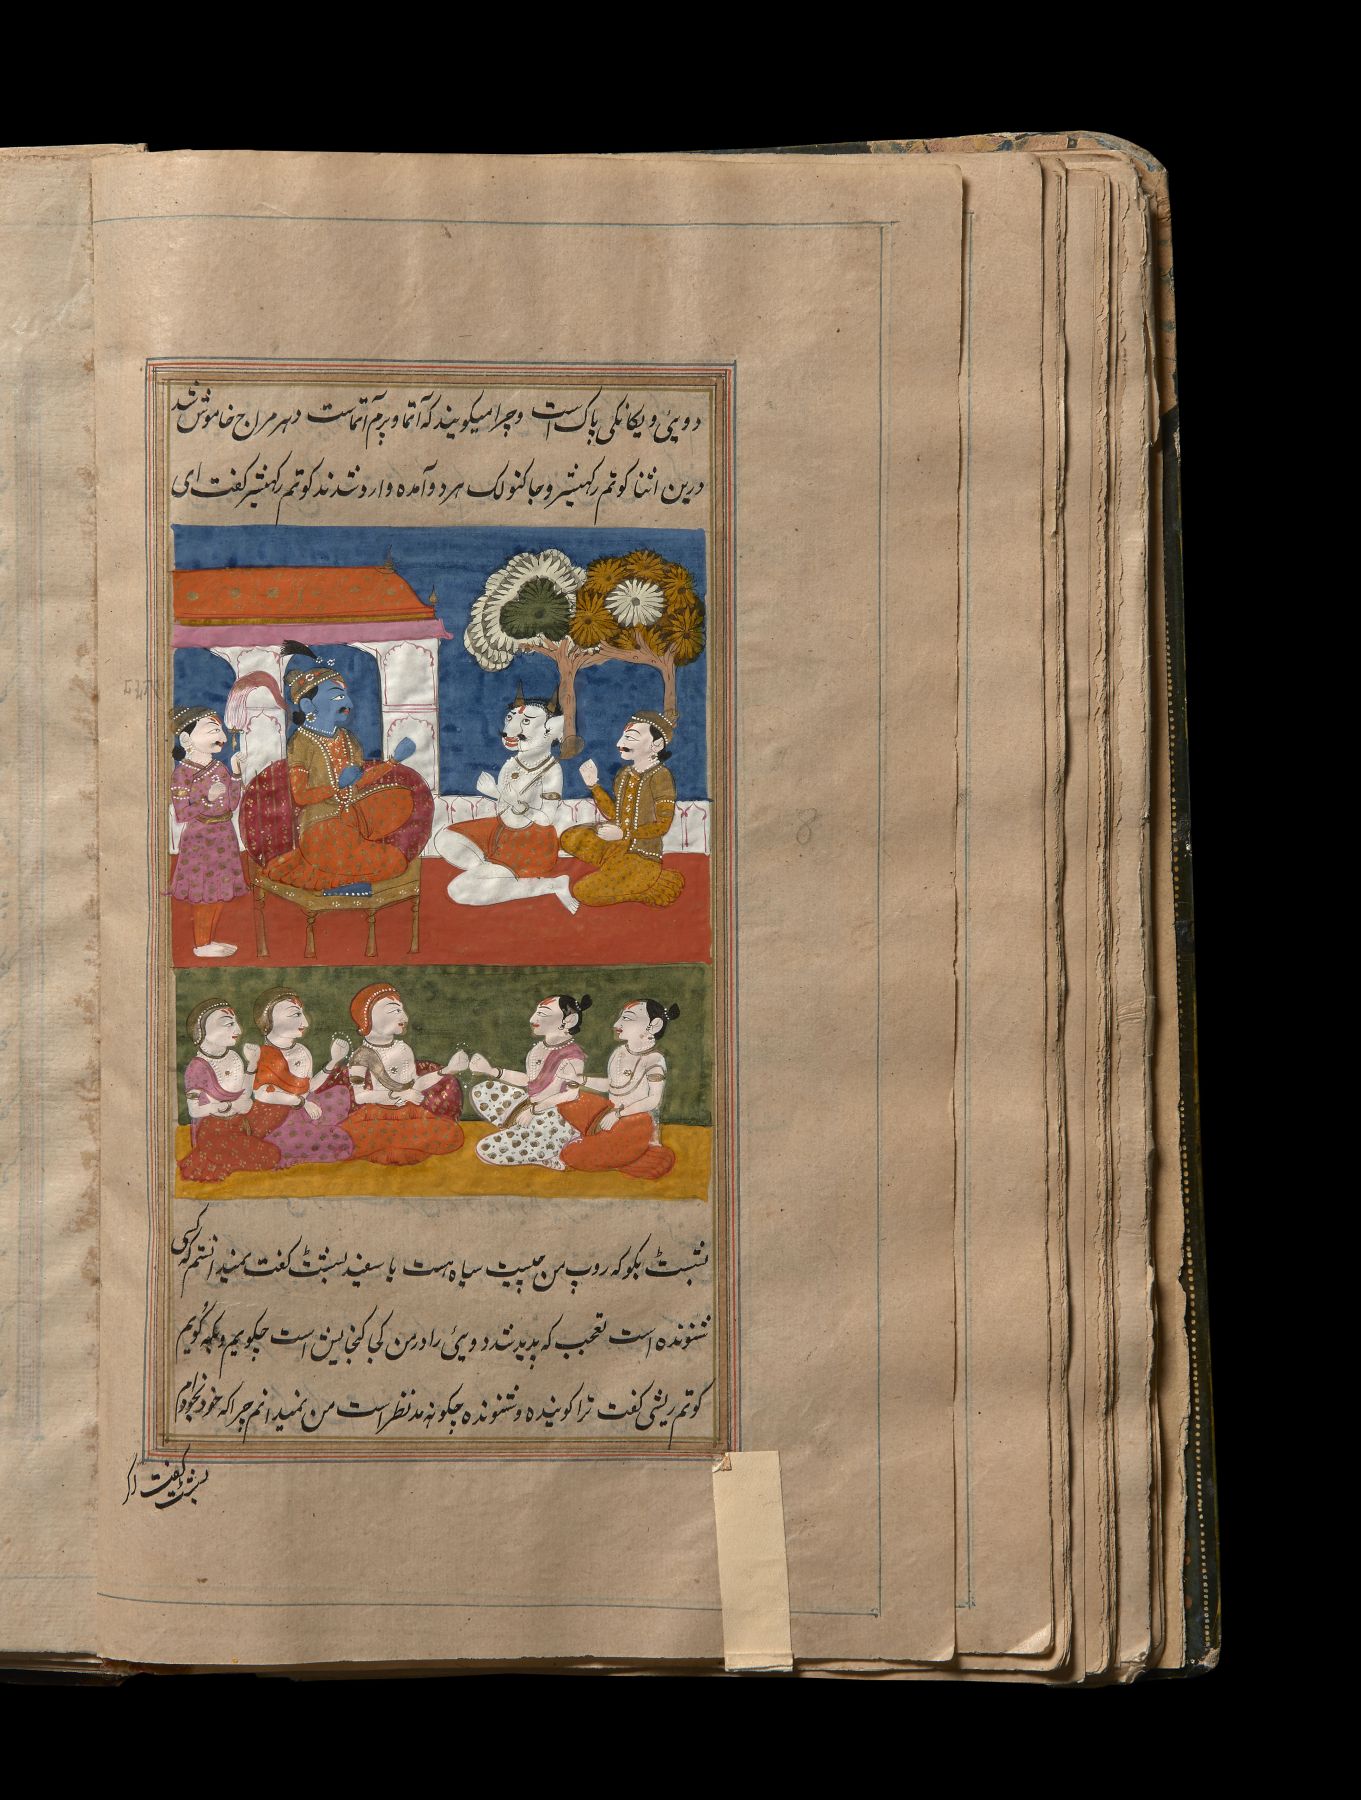 دویٔی و یکانکی پاک است و چرا میکویند که آتما و پرم آتماست دهرمراج خاموش شد
درین اثنا کوتم رکهیشر و جاکنولک هر دو آمده وارد شدند کوتم رکهیشر کفت ای
بشبت بکو که روپ من چیست سیاه هست یا سفید بشبت کفت نمیدانستم که کسی
شنونده است تعجب که پدید شد دویٔی را در من کجا کنجایش است چکویم و بکه کویم
کوتم ریشی کفت ترا کوینده و شنونده چکونه مد نظر است من نمیدانم چرا که خود بخودام
بشبت کفت اکر
8